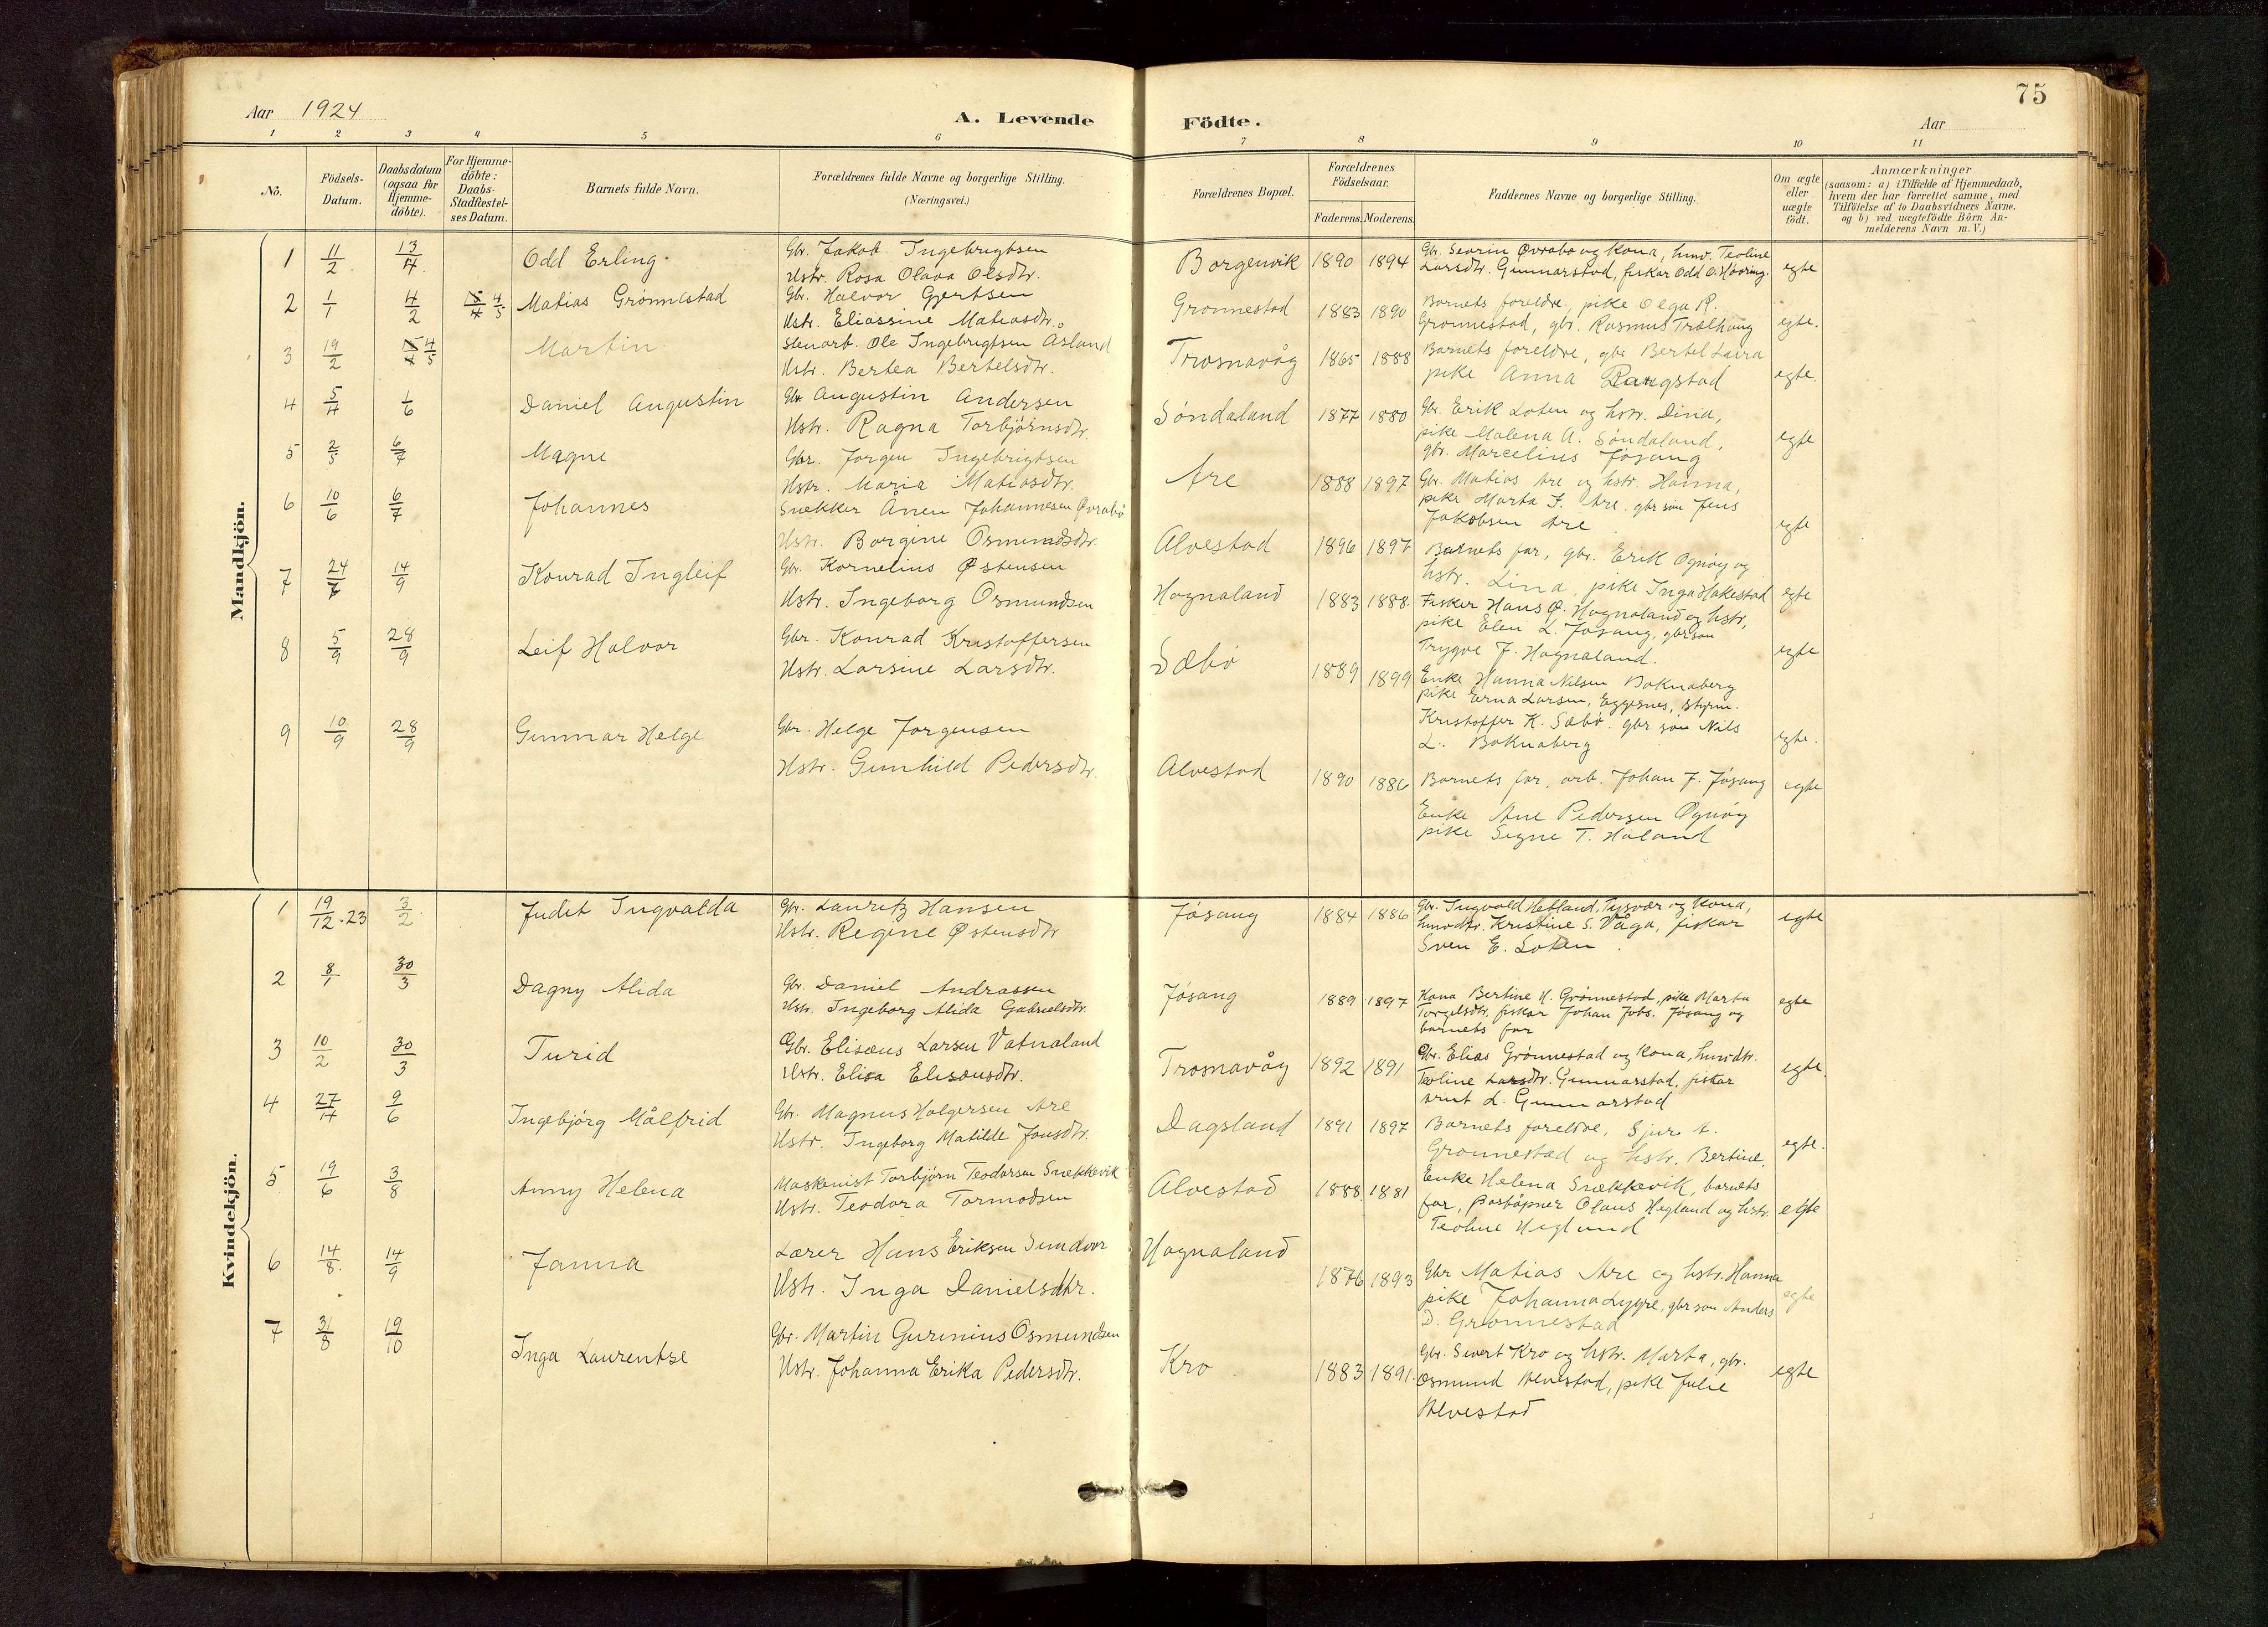 75
Aar 1924
A. Levende Födte.
Aar
1 2 3 4 5 6 7 8 9 10 11
Nô.
Födsels-Datum.
Daabsdatum (ogsaa for Hjemme-döbte).
For Hjemme-döbte: Daabs-Stadfæstel-ses Datum.
Barnets fulde Navn.
Forældrenes fulde Navne og borgerlige Stilling.
(Næringsvei.)
Forældrenes Bopæl.
Forældrenes Födselsaar.
Faderens. Moderens.
Faddernes Navne og borgerlige Stilling.
Om ægte eller uægte födt.
Anmærkninger
(saasom: a) i Tilfælde af Hjemmedaab,
hvem der har forrettet samme, med
Tilföielse af to Daabsvidners Navne.
og b) ved uægtefödte Börn An-
melderens Navn m. V.)
Mandkjön.
1 11/2 13/4 Odd Erling Gbr. Jakob Ingebrigtsen
Hstr. Rosa Olava Olsdtr.
Borgenvik 1890 1894 Gbr. Severin Øvrabø og kona, hmv. Teoline
Larsdtr. Gunnarstad, fiskar Odd O. Høvring. egte
2 1/1 4/2 4/5 Matias Grønnestad Gbr. Halvor Gjertsen
Hstr. Eliassine Matiasdtr.
Grønnestad 1883 1890 Barnets foreldre, pike Olga R.
Grønnestad, gbr. Rasmus Trælhaug egte.
3 19/2 4/5 Martin Stenarb. Ole Ingebrigtsen Åsland
Hstr. Bertea Bertelsdtr.
Trosnavåg 1865 1888 Barnets foreldre, gbr. Bertel Laira
pike Anna Rangstad egte.
4 5/4 1/6 Daniel Augustin Gbr. Augustin Andersen
Hstr. Ragna Torbjørnsdtr.
Søndaland 1877 1880 Gbr. Erik Loten og hstr. Dina,
pike Malena A. Søndaland,
gbr. Marcelius Jøsang egte
5 2/5 6/7 Magne Gbr. Jørgen Ingebrigtsen
Hstr. Maria Matiasdtr.
Are 1888 1897 Gbr. Matias Are og hstr. Hanna,
pike Marta J. Are, gbr søn Jens
Jakobsen Are egte
6 10/6 6/7 Johannes Snekker Ånen Johannesen Øvrabø
Hstr. Borgine Osmundsdtr.
Alvestad 1896 1897 Barnets far, gbr. Erik Ognøy og
hstr. Lina, pike Inga Hakestad egte
7 24/7 14/9 Konrad Ingleif Gbr. Kornelius Østensen
Hstr. Ingeborg Osmundsen
Hognaland 1883 1888. Fisker Hans Ø. Hognaland og hstr,
pike Elen L. Jøsang, gbr søn
Trygve J. Hognaland. egte
8 5/9 28/9 Leif Halvor Gbr. Konrad Kristoffersen
Hstr. Larsine Larsdtr.
Sæbø 1889 1899 Enke Hanna Nilsen Boknaberg
pike Erna Larsen, Eggesnes, styrm.
Kristoffer K. Sæbø, gbr søn Nils
L. Boknaberg egte.
9 10/9 28/9 Gunnar Helge Gbr. Helge Jørgensen
Hstr. Gunhild Pedersdtr.
Alvestad 1890 1886 Barnets far, arb. Johan J. Jøsang
Enke Ane Pedersen Ognøy
pike Signe T. Håland egte
Kvindekjön.
1 19/12.23 3/2 Judit Ingvalda Gbr. Lauritz Hansen
Hstr. Regine Østensdtr
Jøsang 1884 1886 Gbr. Ingvald Hetland, Tysvær og kona,
hmvdtr. Kristine S. Våga, fiskar
Sven E. Loten. egte
2 8/1 30/3 Dagny Alida Gbr. Daniel Andreassen
Hstr. Ingeborg Alida Gabrielsdtr.
Jøsang 1889 1897 Kona Bertine H. Grønnestad, pike Marta
Torgilsdtr. fiskar Johan Jobs. Jøsang og
barnets far egte
3 10/2 30/3 Turid Gbr. Elisæus Larsen Vatnaland
Hstr. Elisa Elisæusdtr.
Trosnavåg 1892 1891 Gbr. Elias Grønnestad og kona, hmvdtr.
Teoline Larsdtr. Gunnarstad, fiskar
Arnt L. Gunnarstad egte.
4 27/4 9/6 Ingebjørg Målfrid Gbr. Magnus Holgersen Are
Hstr. Ingeborg Matilde Jonsdtr.
Dagsland 1891 1897 Barnets foreldre, Sjur A.
Grønnestad og hstr. Bertine. egte.
5 19/6 3/8 Anny Helena Maskenist Torbjørn Teodorsen Snekkevik
Hstr. Teodora Tormodsen
Alvestad 1888. 1881 Enke Helena Snekkevik, barnets
far, poståpner Olaus Hegland og hstr.
Teoline Hegland egte
6 14/8. 14/9 Janna Lærer Hans Eriksen Sundvor
Hstr. Inga Danielsdtr.
Hognaland 1876 1893 Gbr Matias Are og hstr. Hanna
pike Johanna Lygre, gbr søn Anders
D. Grønnestad egte
7 31/8 19/10 Inga Laurentse Gbr. Martin Gurinius Osmundsen
Hstr. Johanna Erika Pedersdtr.
Kro 1883 1891. Gbr. Sivert Kro og hstr. Marta, gbr.
Osmund Alvestad, pike Julie
Alvestad egte